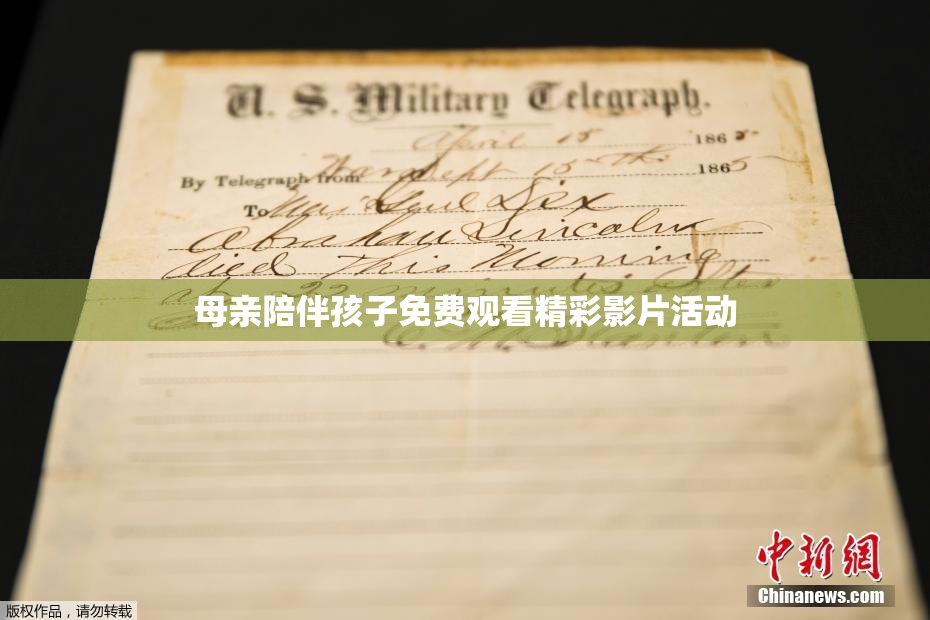 U. S. Military Telegraph.
April 15 1865
By Telegraph from War Dept 15th 1865
To Maj Genl Dix
Abraham Lincoln
died This Morning
at 22 minutes after
母亲陪伴孩子免费观看精彩影片活动
E. M. Stanton
中新网
Chinanews.com
版权作品，请勿转载